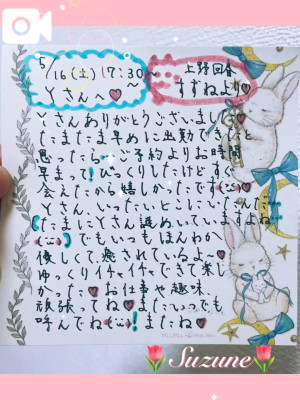 5/16(土)17:30〜
Yさん♡
上野回春
すずねより♡
Yさんありがとうございました♡
たまたま早めに出勤できたと
思ったら、ご予約よりお時間
早まって!びっくりしたけどすぐ
会えたから嬉しかったです
Yさん、いったいどこにいたんだ…
(たまにYさん謎めいていますよね…
でもいつもほんわか
優しくて癒されているよ〜♡
ゆっくりイチャイチャできて楽し
かった♡お仕事や趣味
頑張ってね♡またいつでも
呼んでね!またね♡
Suzune